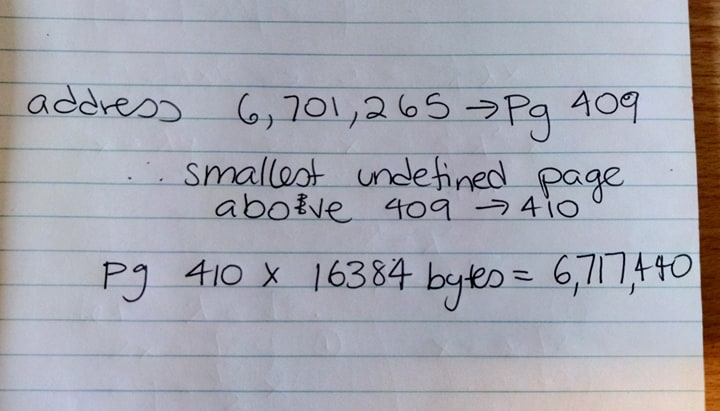 address 6,701,265 → Pg 409
∴ smallest undefined page
above 409 → 410
Pg 410 x 16384 bytes = 6,717,440